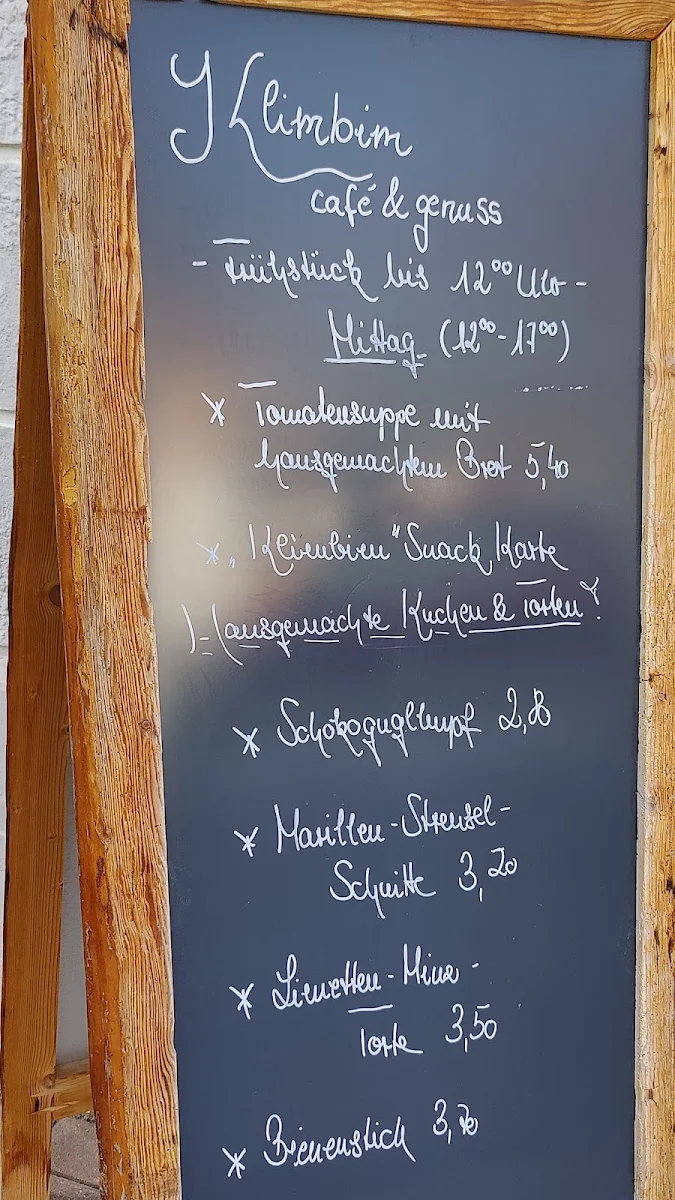 Klimbim
café & genuss
- Frühstück bis 12⁰⁰ Uhr -
Mittag (12⁰⁰-17⁰⁰)
* Tomatensuppe mit
hausgemachtem Brot 5,40
* „Kleinbien“ Snack Karte
Hausgemachte Kuchen & Torten!
* Schokogugelhupf 2,8
* Marillen-Streusel-
Schnitte 3,20
* Limetten-Minz-
Torte 3,50
* Bienenstich 3,